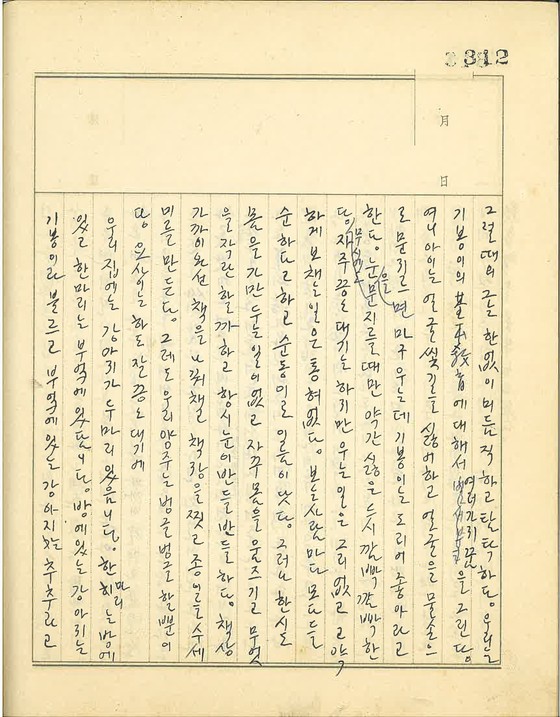 312
月
日
그럴 때의 그는 한없이 미듬직 하고 탐탁하다. 우리는
기봉이의 基本敎育에 대해서 여러가지 꿈을 그린다
여니 아이는 얼굴 씿기를 싫어하고 얼굴을 물손으
로 문지르면 마구 우는데 기봉이는 도리어 좋아라고
한다. 눈을 문지를 때만 약간 싫은 듯시 깜빡 깜빡 한
다. 무시로 자주 끙끙대기는 하지만 우는 일은 그리 없고 고약
하게 보채는 일은 통 혀 없다. 보는 사람마다 모다들
순하다고 하고 순동이로 일홈이 낫다. 그러나 한시도
몸을 가만 두는 일이 없고 자꾸 몸을 움즈기고 무엇
을 작란할까 하고 항시 눈이 반들반들 하다. 책상
가까이 오면 책을 나꿔채 책장을 찢고 종이로 수세
미를 만든다. 그래도 우리 양주는 벙글벙글 할 뿐이
다 요사이는 하도 잘 끙끙대기에
우리 집에는 강아지가 두마리 있읍니다. 한마리는 방에
있고 한마리는 부엌에 있답니다. 방에 있는 강아지는
기봉이라 불르고 부엌에 있는 강아지는 추추라고